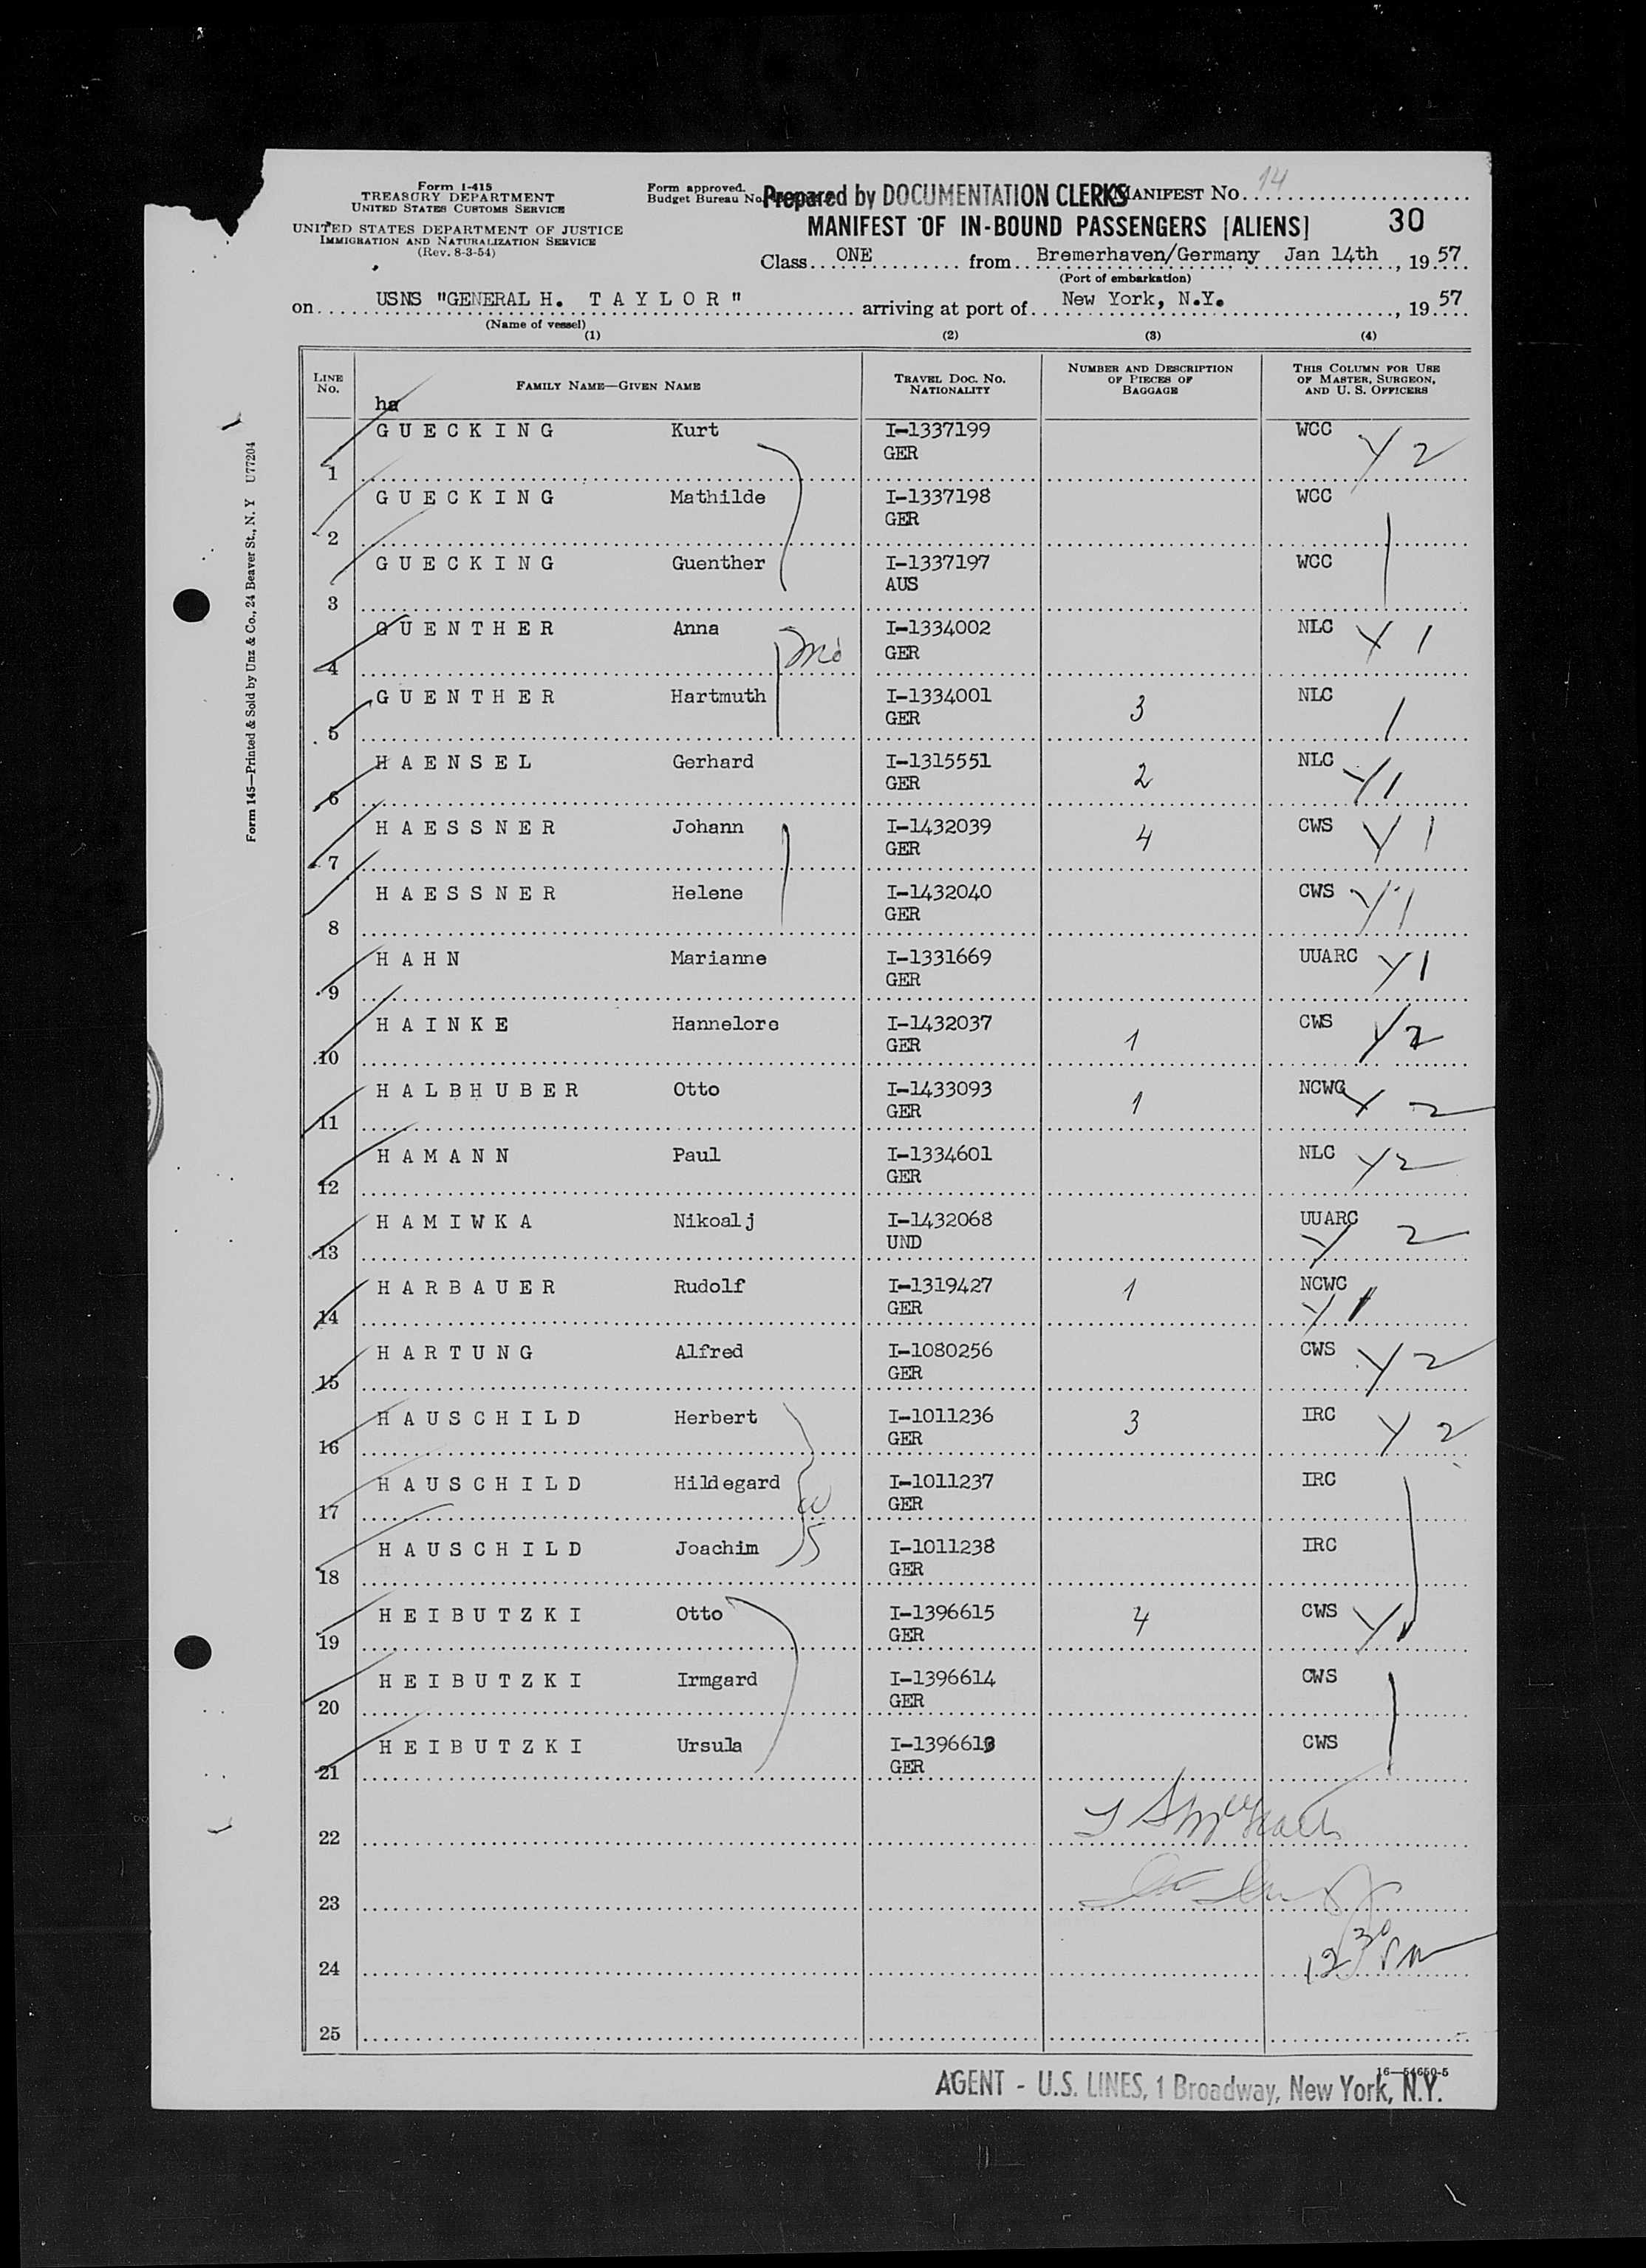 Form I-415
TREASURY DEPARTMENT
UNITED STATES CUSTOMS SERVICE
UNITED STATES DEPARTMENT OF JUSTICE
IMMIGRATION AND NATURALIZATION SERVICE
(Rev. 8-3-54)
Form approved.
Budget Bureau No.
Prepared by DOCUMENTATION CLERKS
MANIFEST NO. 14
MANIFEST OF IN-BOUND PASSENGERS [ALIENS] 30
Class ONE from Bremerhaven/Germany Jan 14th, 19 57
(Port of embarkation)
on USNS "GENERAL H. T A Y L O R" arriving at port of New York, N.Y. , 19 57
(Name of vessel)
(1) (2) (3) (4)
LINE NO. FAMILY NAME—GIVEN NAME TRAVEL DOC. NO. NATIONALITY NUMBER AND DESCRIPTION OF PIECES OF BAGGAGE THIS COLUMN FOR USE OF MASTER, SURGEON, AND U. S. OFFICERS
ha
1 G U E C K I N G Kurt I-1337199 GER WCC Y 2
2 G U E C K I N G Mathilde I-1337198 GER WCC
3 G U E C K I N G Guenther I-1337197 AUS WCC
4 G U E N T H E R Anna I-1334002 GER NLC Y 1
5 G U E N T H E R Hartmuth I-1334001 GER 3 NLC
6 H A E N S E L Gerhard I-1315551 GER 2 NLC Y 1
7 H A E S S N E R Johann I-1432039 GER 4 CWS Y 1
8 H A E S S N E R Helene I-1432040 GER CWS Y 1
9 H A H N Marianne I-1331669 GER UUARC Y 1
10 H A I N K E Hannelore I-1432037 GER 1 CWS Y 2
11 H A L B H U B E R Otto I-1433093 GER 1 NCWC Y 2
12 H A M A N N Paul I-1334601 GER NLC Y 2
13 H A M I W K A Nikoalj I-1432068 UND UUARC Y 2
14 H A R B A U E R Rudolf I-1319427 GER 1 NCWC Y 1
15 H A R T U N G Alfred I-1080256 GER CWS Y 2
16 H A U S C H I L D Herbert I-1011236 GER 3 IRC Y 2
17 H A U S C H I L D Hildegard I-1011237 GER IRC
18 H A U S C H I L D Joachim I-1011238 GER IRC
19 H E I B U T Z K I Otto I-1396615 GER 4 CWS Y
20 H E I B U T Z K I Irmgard I-1396614 GER CWS
21 H E I B U T Z K I Ursula I-1396613 GER CWS
22
23
24 12 30 PM
25
16—54650-5
AGENT - U.S. LINES, 1 Broadway, New York, N.Y.
Form 145—Printed & Sold by Unz & Co., 24 Beaver St., N. Y U77204